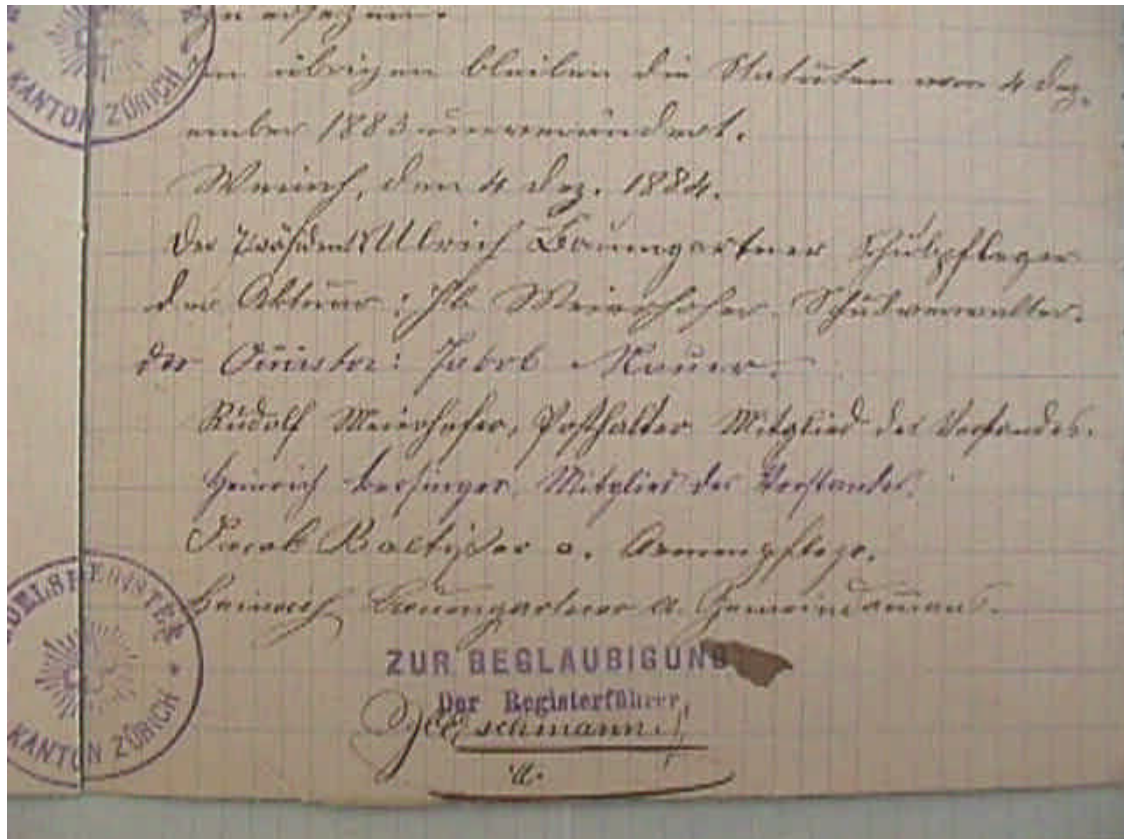 KANTON ZÜRICH
Im übrigen bleiben die Statuten vom 4 Dez-
ember 1883 unverändert.
Weiach, den 4 Dez. 1884.
Der Präsident Ulrich Baumgartner Schulpfleger
der Aktuar: Jb Meierhofer Schulverwalter.
der Quästor: Jakob Nauer.
Rudolf Meierhofer, Posthalter Mitglied des Vorstandes.
Heinrich Bersinger, Mitglied des Vorstandes.
Jacob Baltisser a. Armenpflege.
Heinrich Baumgartner a. Gemeindamann.
KANTON ZÜRICH
ZUR BEGLAUBIGUNG
Der Registerführer
Eschmann
a.